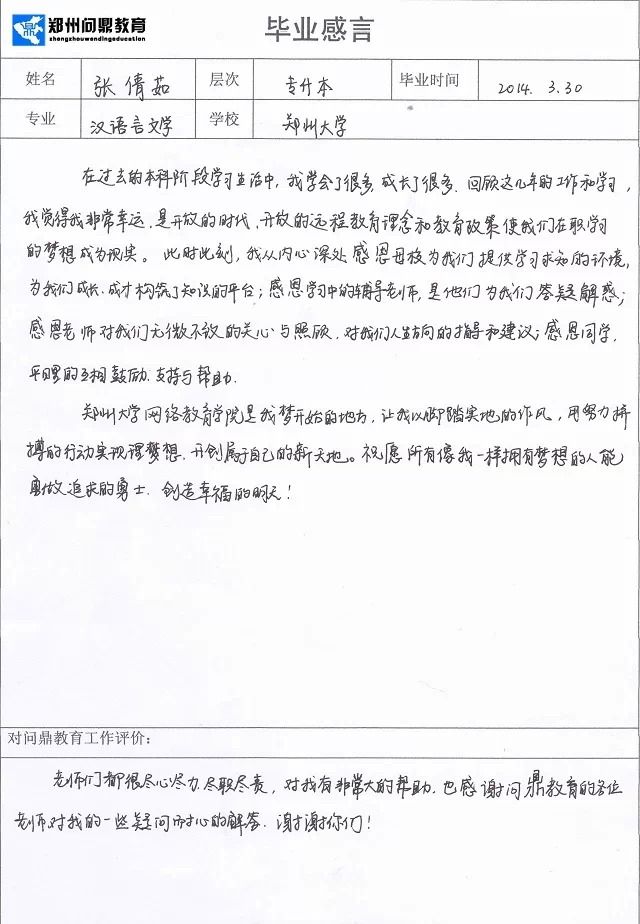 鼎 郑州问鼎教育
zhengzhouwendingeducation
毕业感言
姓名 张倩茹 层次 专升本 毕业时间 2014.3.30
专业 汉语言文学 学校 郑州大学
在过去的本科阶段学习生活中,我学会了很多,成长了很多.回顾这几年的工作和学习,
我觉得我非常幸运,是开放的时代,开放的远程教育理念和教育政策使我们在职学习
的梦想成为现实。此时此刻,我从内心深处感恩母校为我们提供学习求知的环境,
为我们成长.成才构筑了知识的平台;感恩学习中的辅导老师,是他们为我们答疑解惑;
感恩老师对我们无微不议的关心与照顾.对我们人生方向的指导和建议;感恩同学,
平日里的互相鼓励.支持与帮助.
郑州大学网络教育学院是我梦开始的地方,让我以脚踏实地的作风,用努力拼
搏的行动实现课梦想.开创属于自己的新天地。祝愿所有像我一样拥有梦想的人能
勇做追求的勇士.创造幸福的明天!
对问鼎教育工作评价:
老师们都很尽心尽力.尽职尽责,对我有非常大的帮助.也感谢问鼎教育的各位
老师对我的一些疑问耐心的解答.谢谢你们!